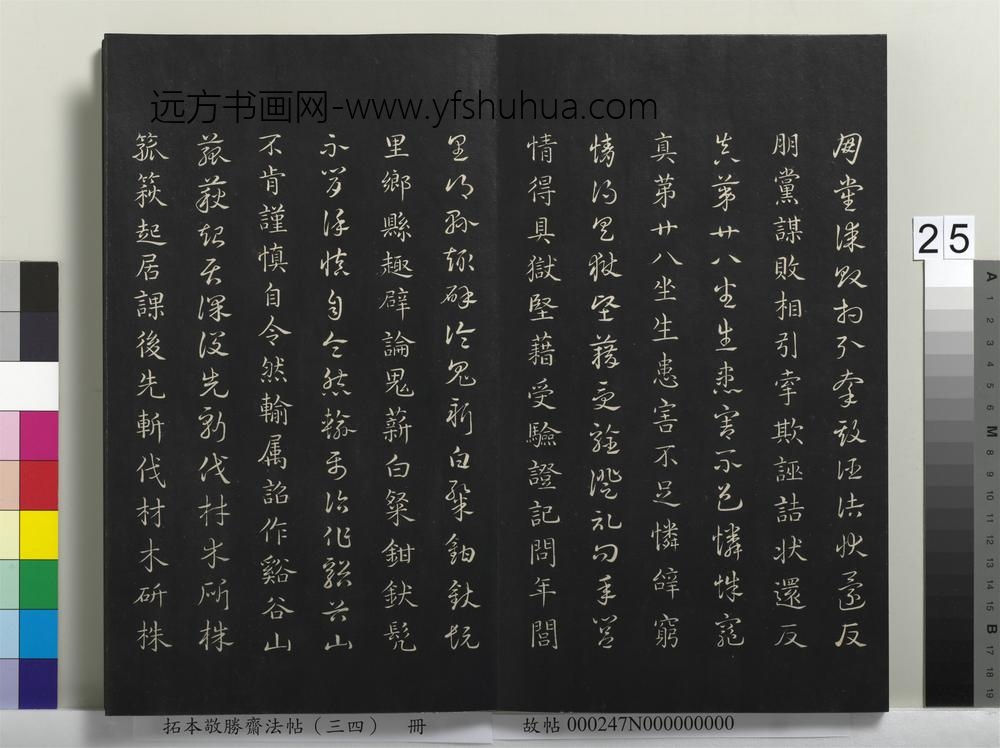 远方书画网-www.yfshuhua.com
朋黨謀敗相引牽欺誣詰状還反
朋黨謀敗相引牽欺誣詰状還反
真第廿八坐生患害不足憐
真第廿八坐生患害不足憐辥窮
情得具獄堅藉受驗證記問年閭
情得具獄堅藉受驗證記問年閭
里鄉縣趣辟論鬼薪白粲鉗釱髡
里鄉縣趣辟論鬼薪白粲鉗釱髡
不肯謹慎自令然輸属詔作谿谷山
不肯謹慎自令然輸属詔作谿谷山
起居課後先斬伐材木斫株
箛篍起居課後先斬伐材木斫株
拓本敬勝齋法帖（三四） 冊
故帖 000247N000000000
25
A 1 2 3 4 5 6 M 8 9 10 11 12 13 14 15 B 17 18 19